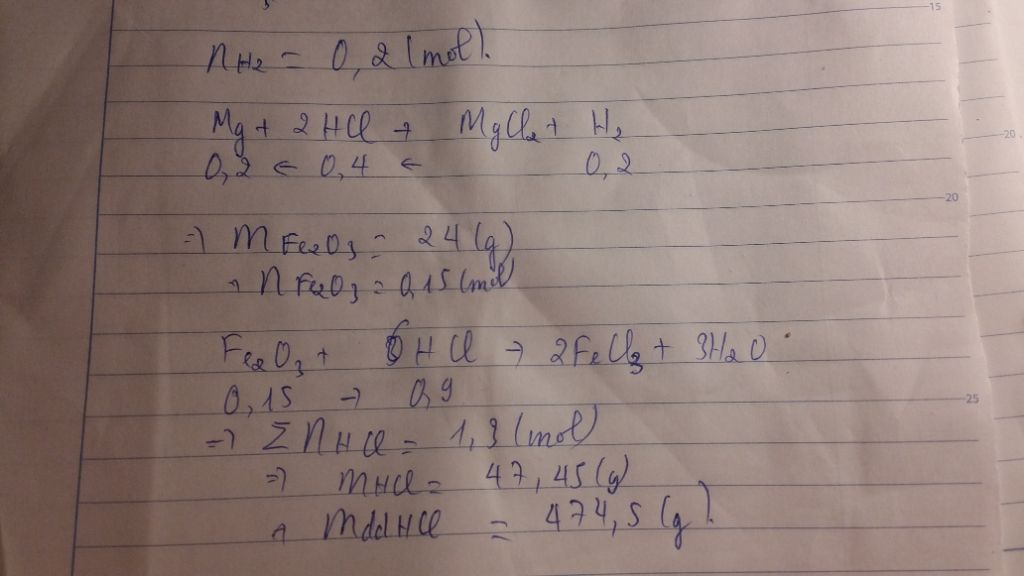 15
nH2 = 0,2 (mol).
Mg + 2HCl → MgCl2 + H2
20
0,2 ← 0,4 ← 0,2
20
=> mFe2O3 = 24 (g)
→ nFe2O3 = 0,15 (mol)
Fe2O3 + 6HCl → 2FeCl3 + 3H2O
0,15 → 0,9
25
=> ΣnHCl = 1,3 (mol)
=> mHCl = 47,45 (g)
→ mddHCl = 474,5 (g).